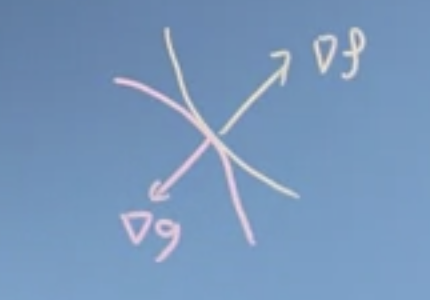 ∇f
∇g